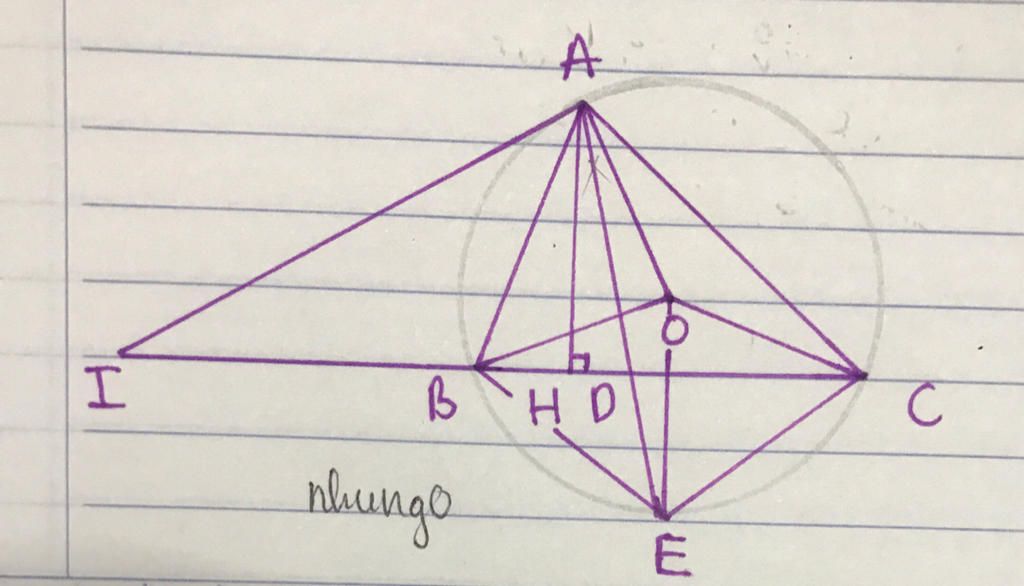 A
O
I B H D C
nhungo
E